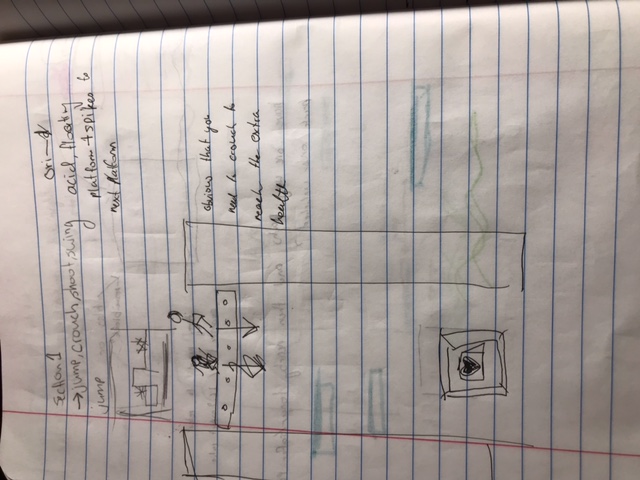 Section 1
→jump, crouch, shoot, swing
jump
Ori →
acid, floating
platform + spikes to
next platform
obvious that you
need to crouch to
reach the extra
health